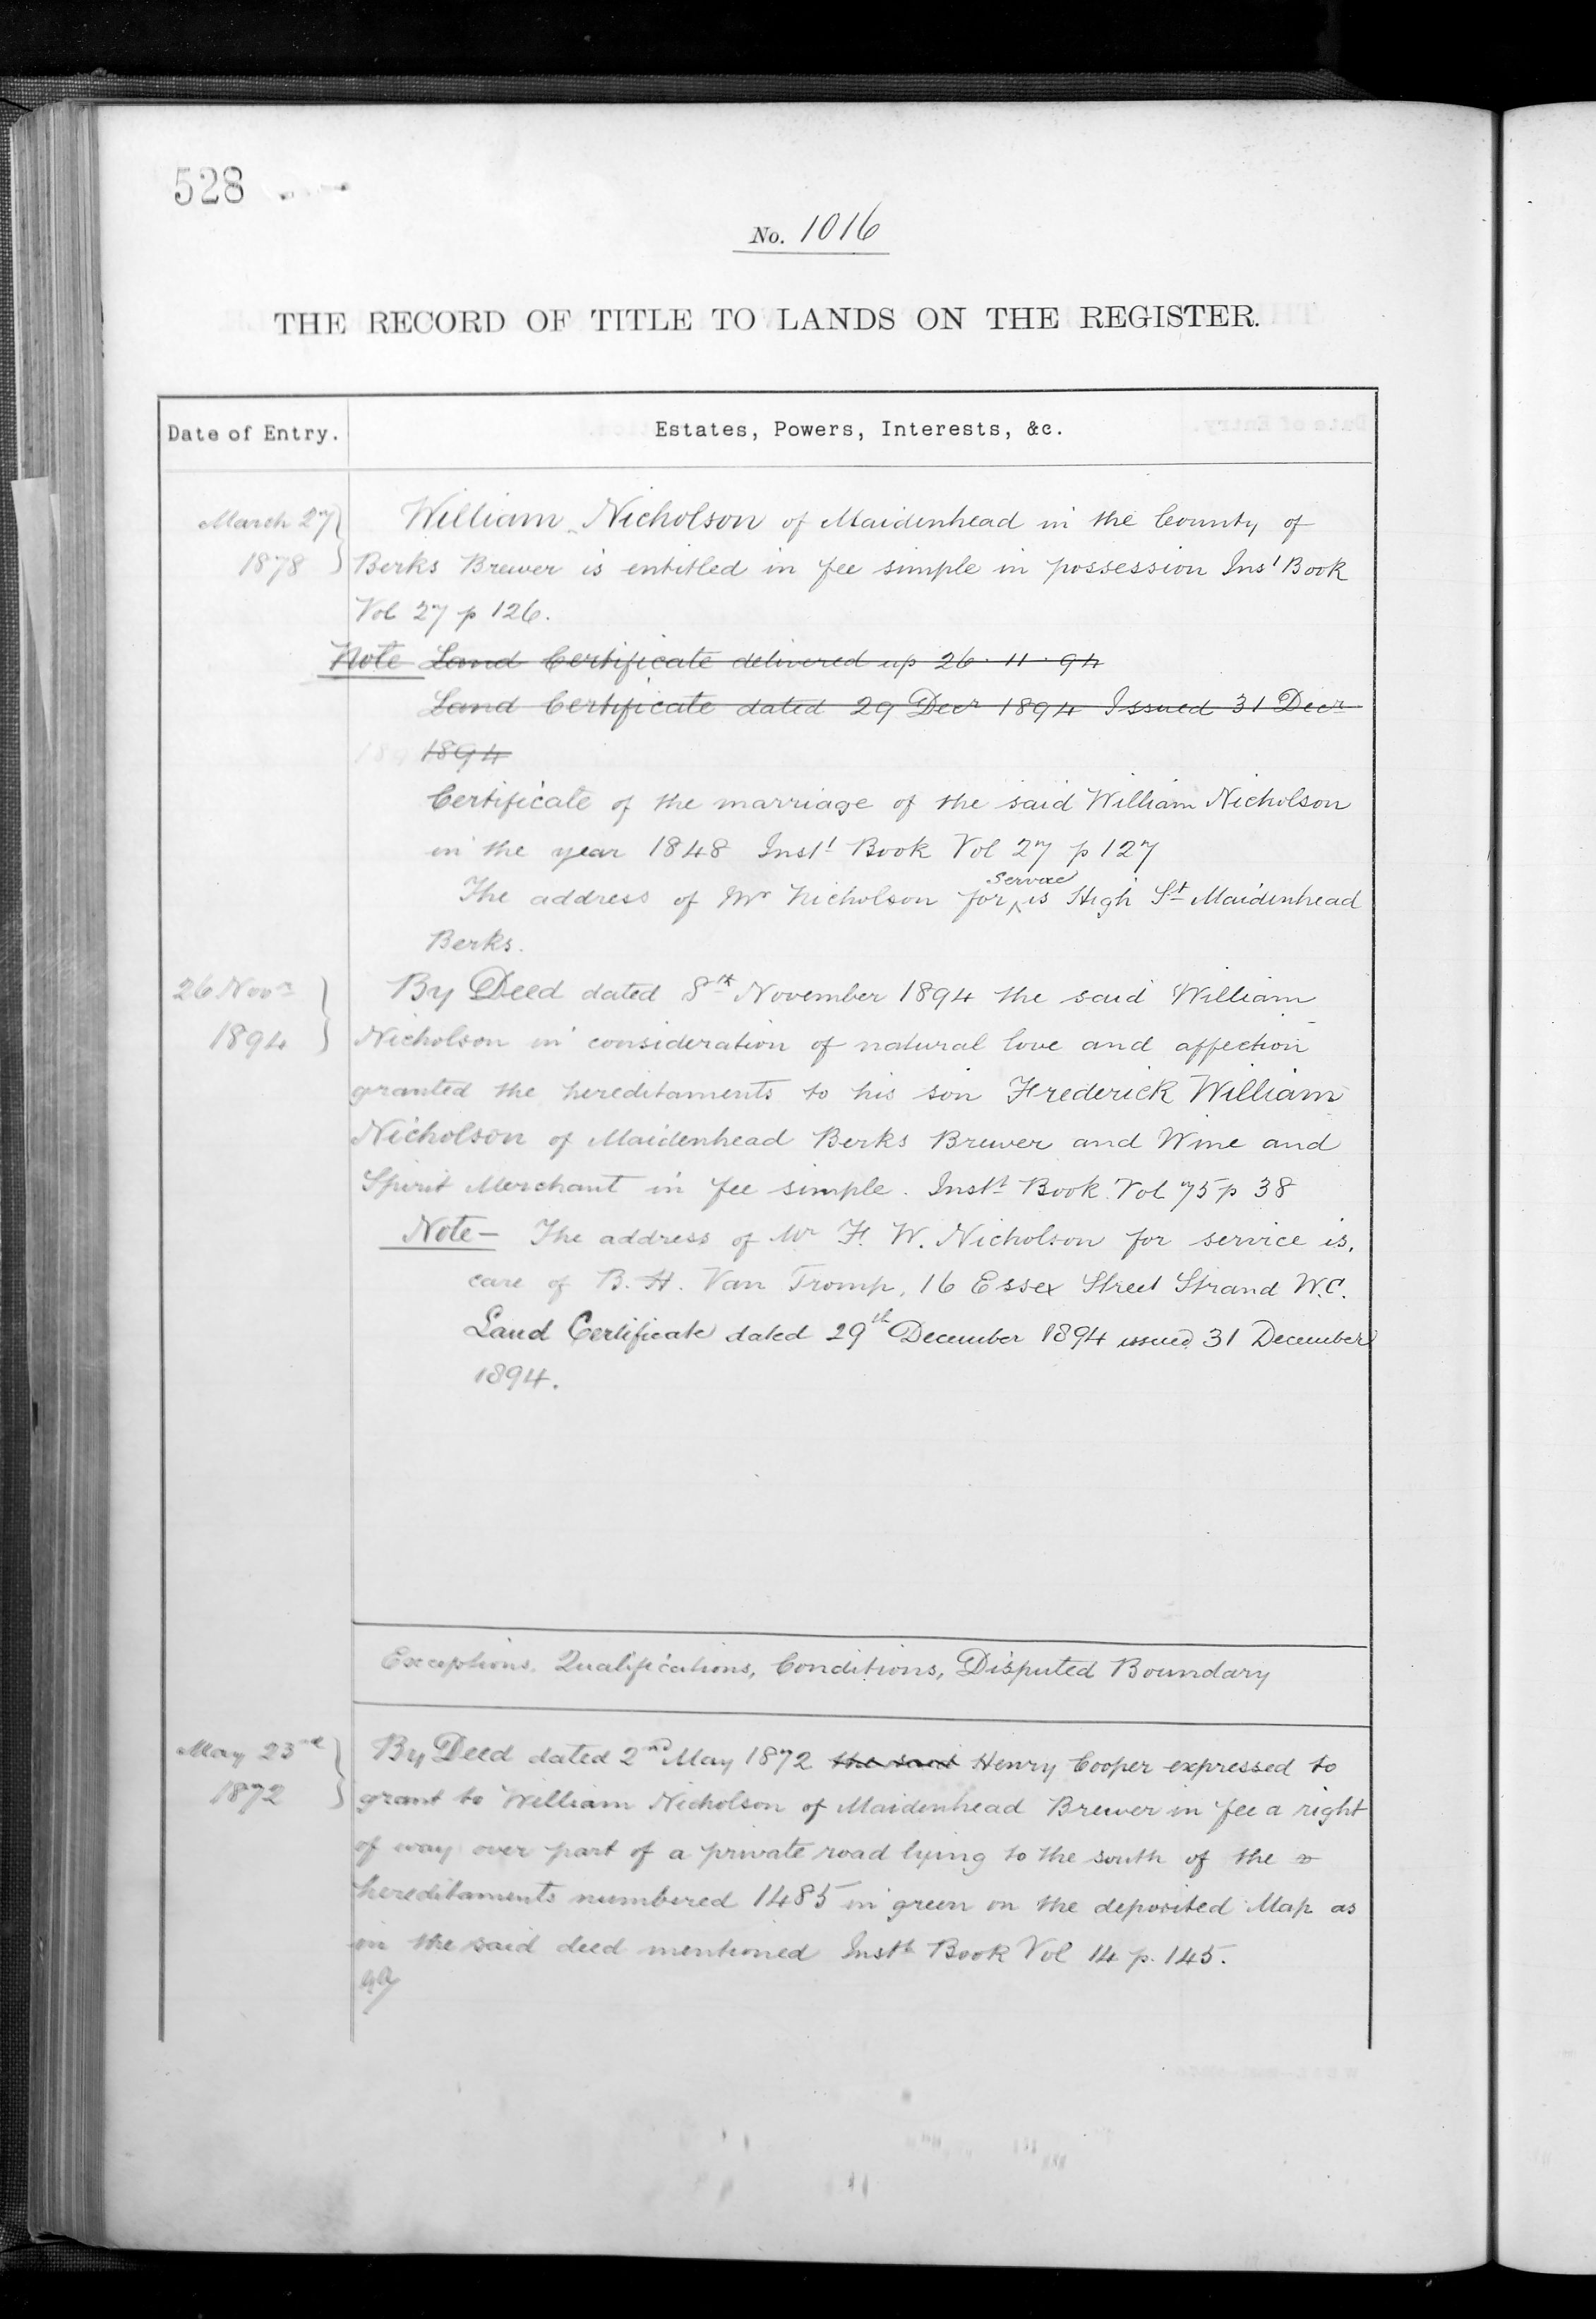 528
No. 1016
THE RECORD OF TITLE TO LANDS ON THE REGISTER.
Date of Entry.
Estates, Powers, Interests, &c.
March 27 1878
William Nicholson of Maidenhead in the County of
Berks Brewer is entitled in fee simple in possession Inst Book
Vol 27 p 126.
Note Land Certificate delivered up 26.11.94
Land Certificate dated 29 Decr 1894 Issued 31 Decr
1894
Certificate of the marriage of the said William Nicholson
in the year 1848 Inst Book Vol 27 p 127
The address of Mr Nicholson for service is High St Maidenhead
Berks.
26 Novr 1894
By Deed dated 8th November 1894 the said William
Nicholson in consideration of natural love and affection
granted the hereditaments to his son Frederick William
Nicholson of Maidenhead Berks Brewer and Wine and
Spirit Merchant in fee simple. Inst Book Vol 75 p 38
Note - The address of Mr F. W. Nicholson for service is,
care of B. H. Van Tromp, 16 Essex Street Strand W.C.
Land Certificate dated 29th December 1894 issued 31 December
1894.
Exceptions, Qualifications, Conditions, Disputed Boundary
May 23rd 1872
By Deed dated 2nd May 1872 the said Henry Cooper expressed to
grant to William Nicholson of Maidenhead Brewer in fee a right
of way over part of a private road lying to the south of the
hereditaments numbered 1485 in green on the deposited Map as
in the said deed mentioned Inst Book Vol 14 p. 145.